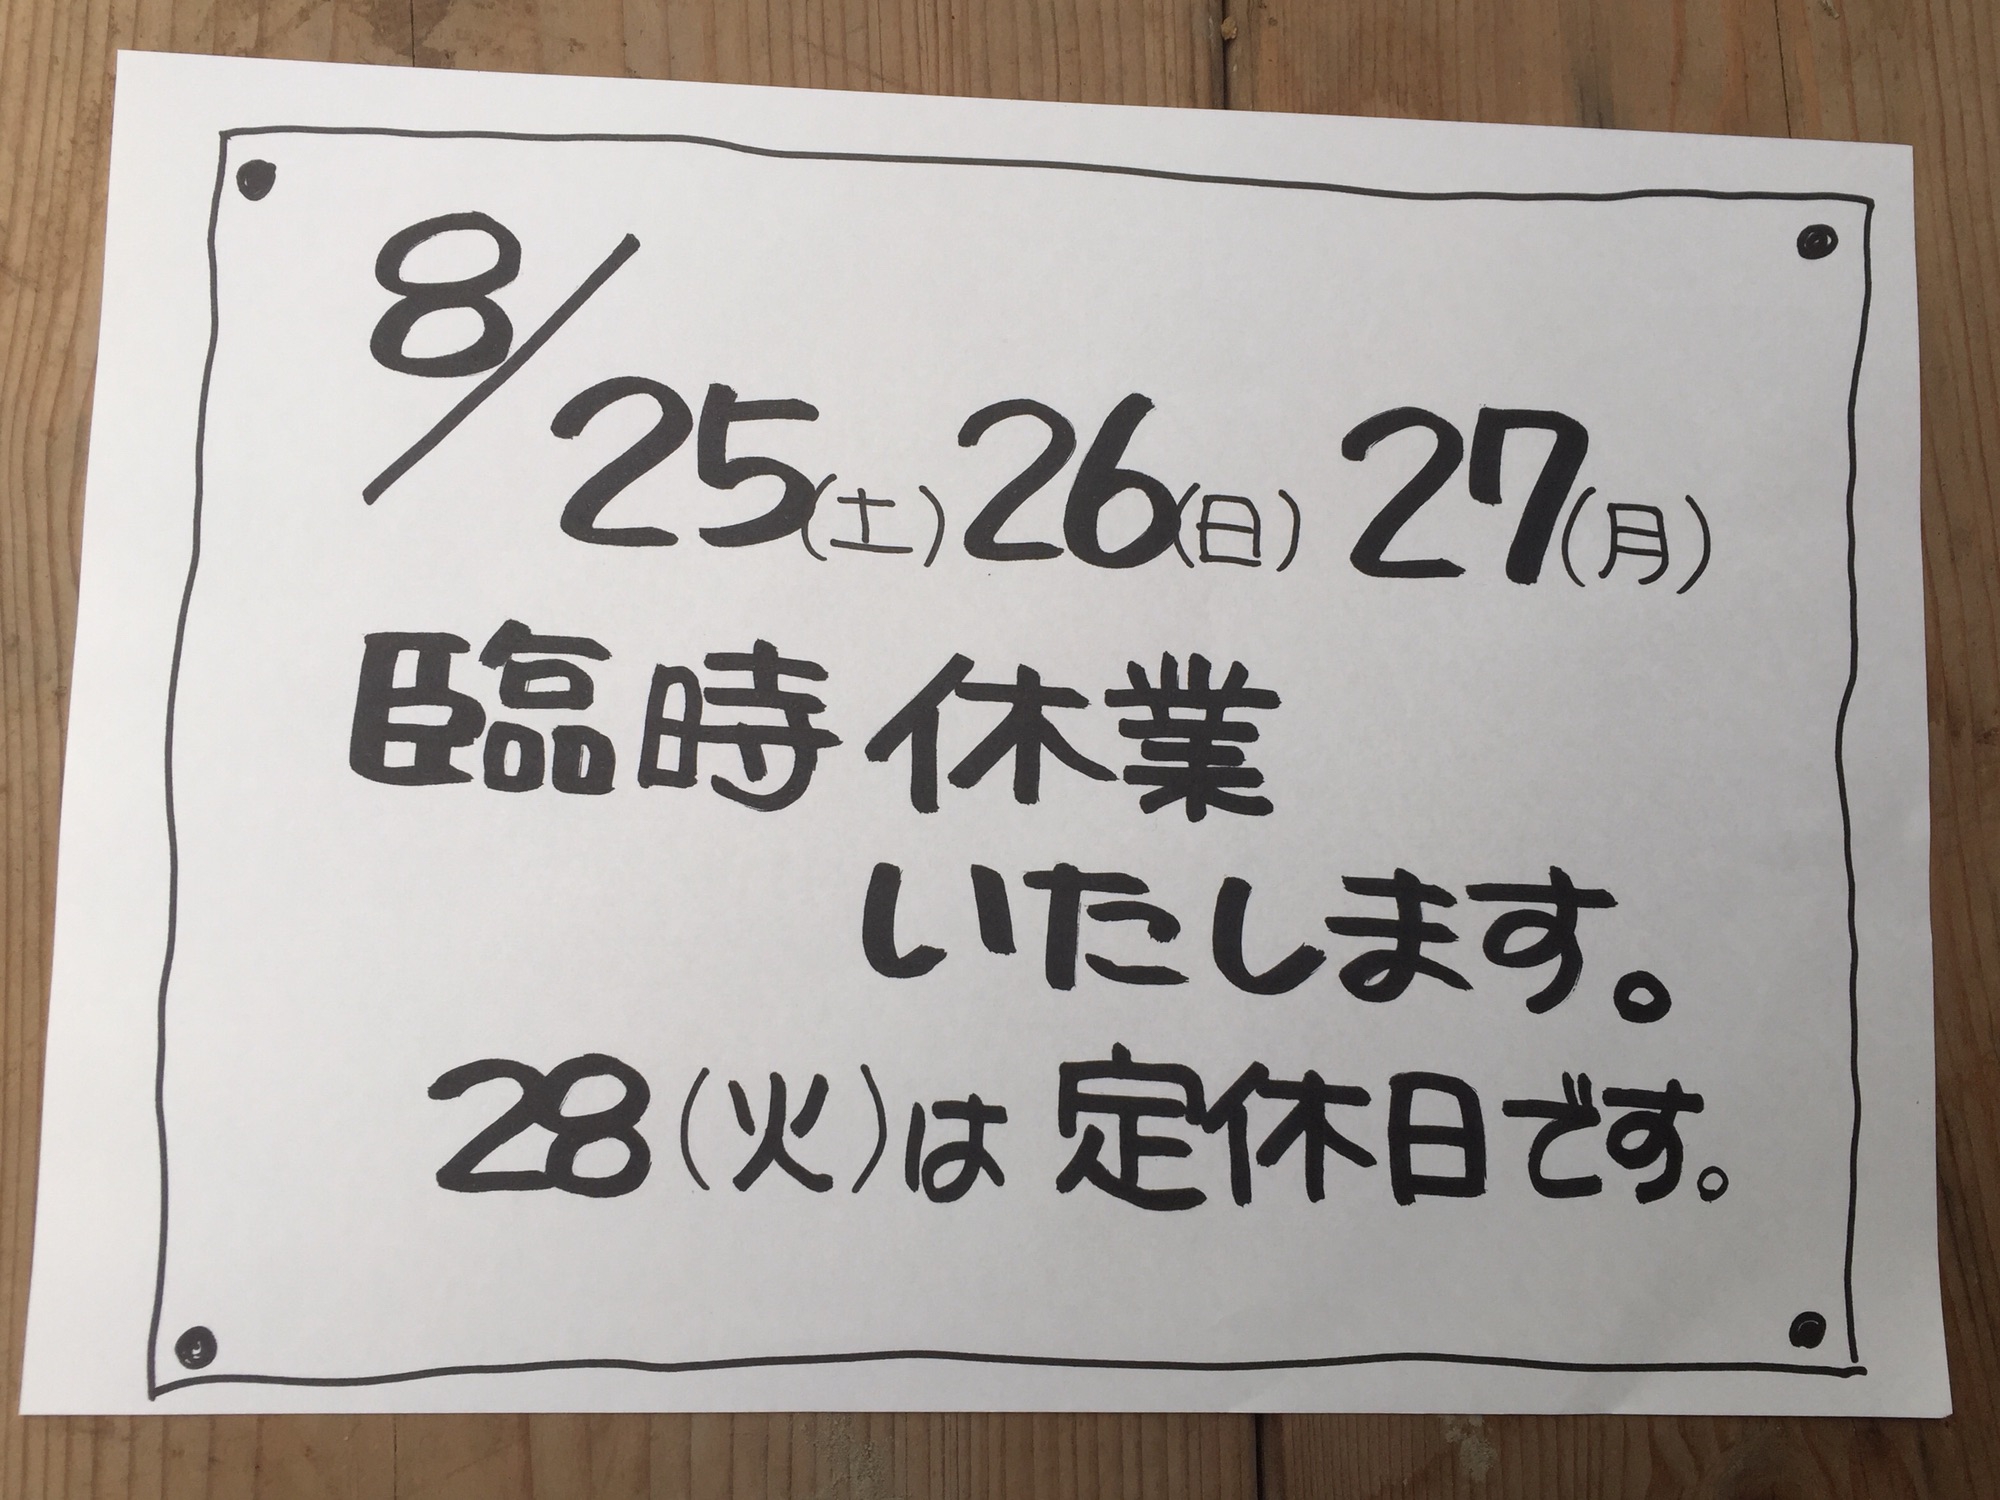 8/25(土)26(日)27(月)
臨時休業
いたします。
28(火)は定休日です。